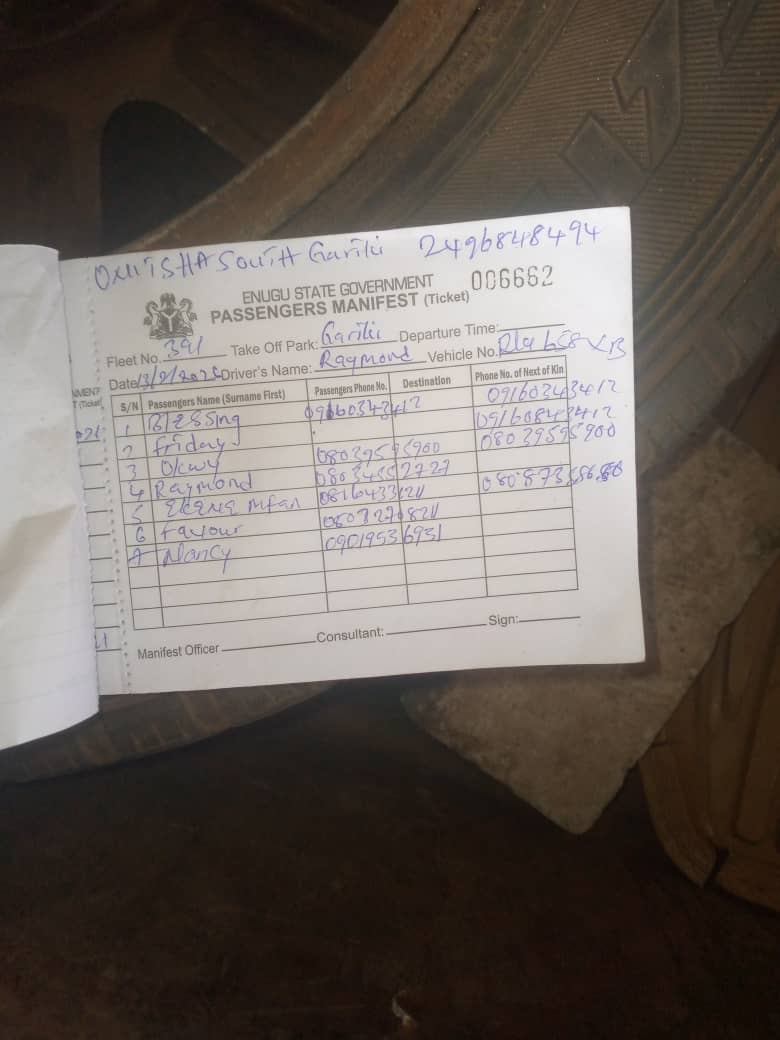 ONITSHA South Gariki 2496848494
ENUGU STATE GOVERNMENT 006662
PASSENGERS MANIFEST (Ticket)
Fleet No. 391 Take Off Park: Gariki Departure Time:
Date 13/2/ Driver's Name: Raymond Vehicle No. 658 XB
S/N Passengers Name (Surname First) Passengers Phone No. Destination Phone No. of Next of Kin
1 Blessing 09160343412 09160343412
2 Friday 09160843412
3 Okwy 08039595900 08039595900
4 Raymond 08034552727
5 08164331211
6 Favour
7 Nancy 09019536931
Manifest Officer Consultant: Sign: